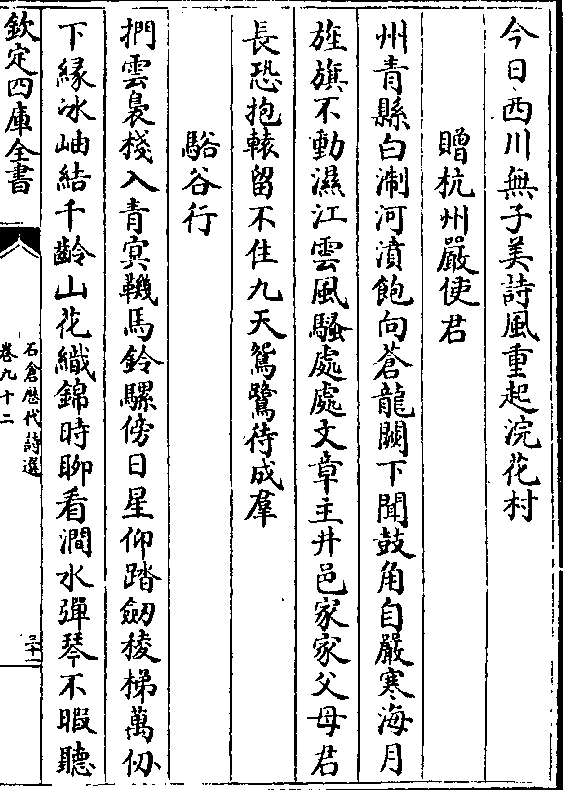 今日西川無子美詩風重起浣花村
贈杭州嚴使君
州青縣白淛河濆飽向蒼龍闕下聞鼓角自嚴寒海月
旌旗不動濕江雲風騷處處文章主井邑家家父母君
長恐抱轅留不住九天鴛鷺待成羣
駱谷行
捫雲裊棧入青冥鞿馬鈴騾傍日星仰踏劒稜梯萬仞
下縁冰岫結千齡山花織錦時聊看澗水彈琴不暇聽
欽定四庫全書
石倉歴代詩選
卷九十二